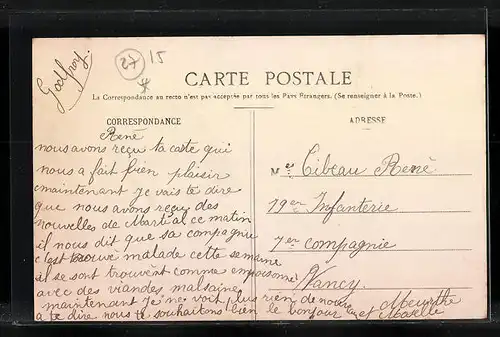 Godfroy.
27
15
CARTE POSTALE
La Correspondance au recto n'est pas acceptée par tous les Pays Etrangers. (Se renseigner à la Poste.)
CORRESPONDANCE
René
nous avons reçu ta carte qui
nous a fait bien plaisir
maintenant je vais te dire
que nous avons reçu des
nouvelles de Martial ce matin
il nous dit que sa compagnie
c'est trouvé malade cette semaine
il se sont trouvent comme empoisonné
avec des viandes malsaine
maintenant je ne voit plus rien de nouv
a te dire nous te souhaitons bien le bonjour
ADRESSE
Mr Cibeau René
79em Infanterie
7em compagnie
Nancy
Meurthe
et Moselle